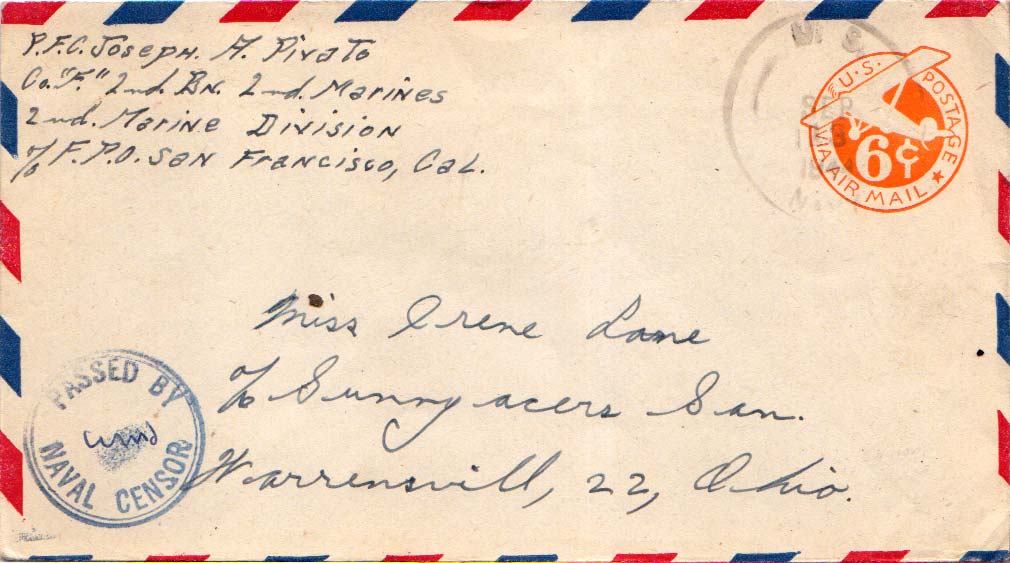 P.F.C. Joseph. A. Pivato
Co. "F." 2nd. Bn. 2nd. Marines
2nd. Marine Division
c/o F.P.O. San Francisco, Cal.
U. S.
SEP
U.S. POSTAGE
6¢
VIA AIR MAIL
Miss Irene Lane
c/o Sunny acers San.
Warrensvill, 22, Ohio.
PASSED BY
NAVAL CENSOR